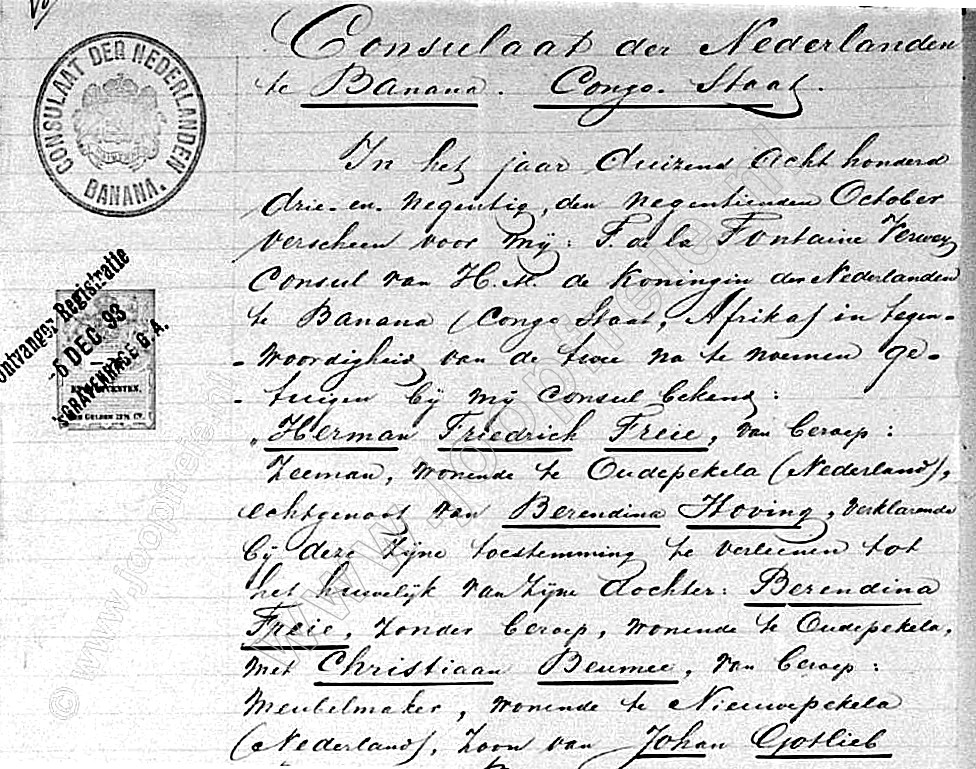 Consulaat der Nederlanden
te Banana. Congo-Staat.
CONSULAAT DER NEDERLANDEN
BANANA.
In het jaar duizend acht honderd
drie-en-negentig, den negentienden October
verscheen voor mij: F. de la Fontaine Verwey
Consul van H.M. de Koningin der Nederlanden
te Banana (Congo Staat, Afrika) in tegen-
-woordigheid van de twee na te noemen ge-
-tuigen bij mij Consul bekend:
Ontvangen Registratie
-6 DEC. 93
'sGRAVENHAGE G.A.
„Herman Friedrich Freie, van beroep:
Zeeman, wonende te Oudepekela (Nederland),
echtgenoot van Berendina Hoving, verklarende
bij deze zijne toestemming te verleenen tot
het huwelijk van zijne dochter: Berendina
Freie, zonder beroep, wonende te Oudepekela,
met Christiaan Beumee, van beroep:
Meubelmaker, wonende te Nieuwepekela
(Nederland), zoon van Johan Gotlieb
© www.joopfreie.nl
www.joopfreie.nl